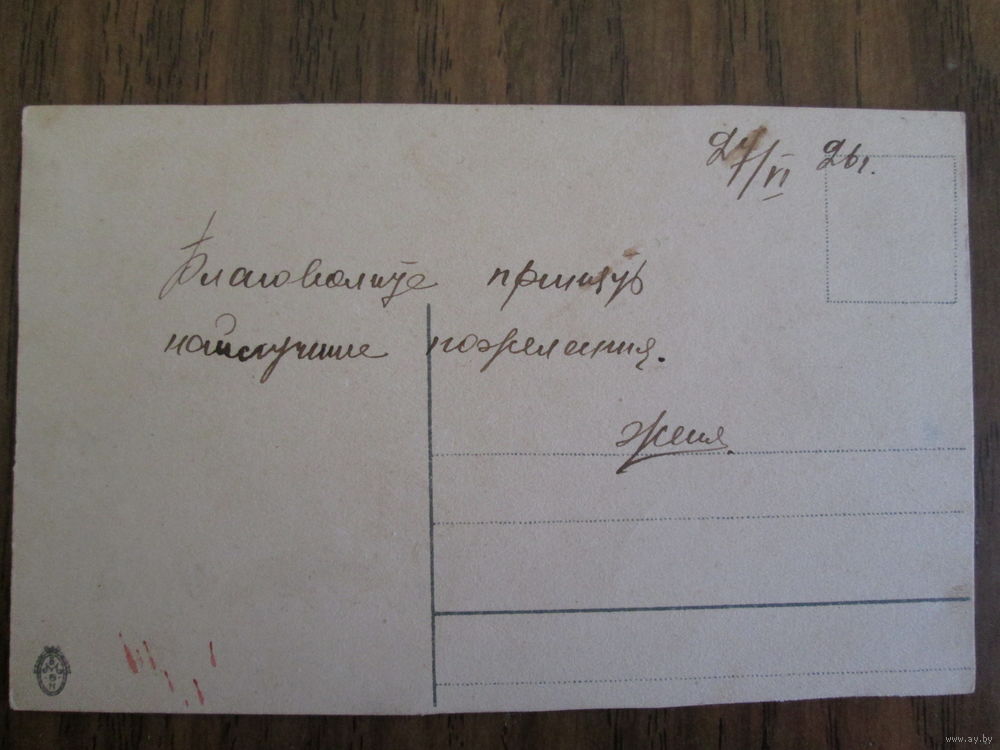 27/VI 26 г.
Благоволите принять
наилучшие пожелания.
Женя.
www.ay.by